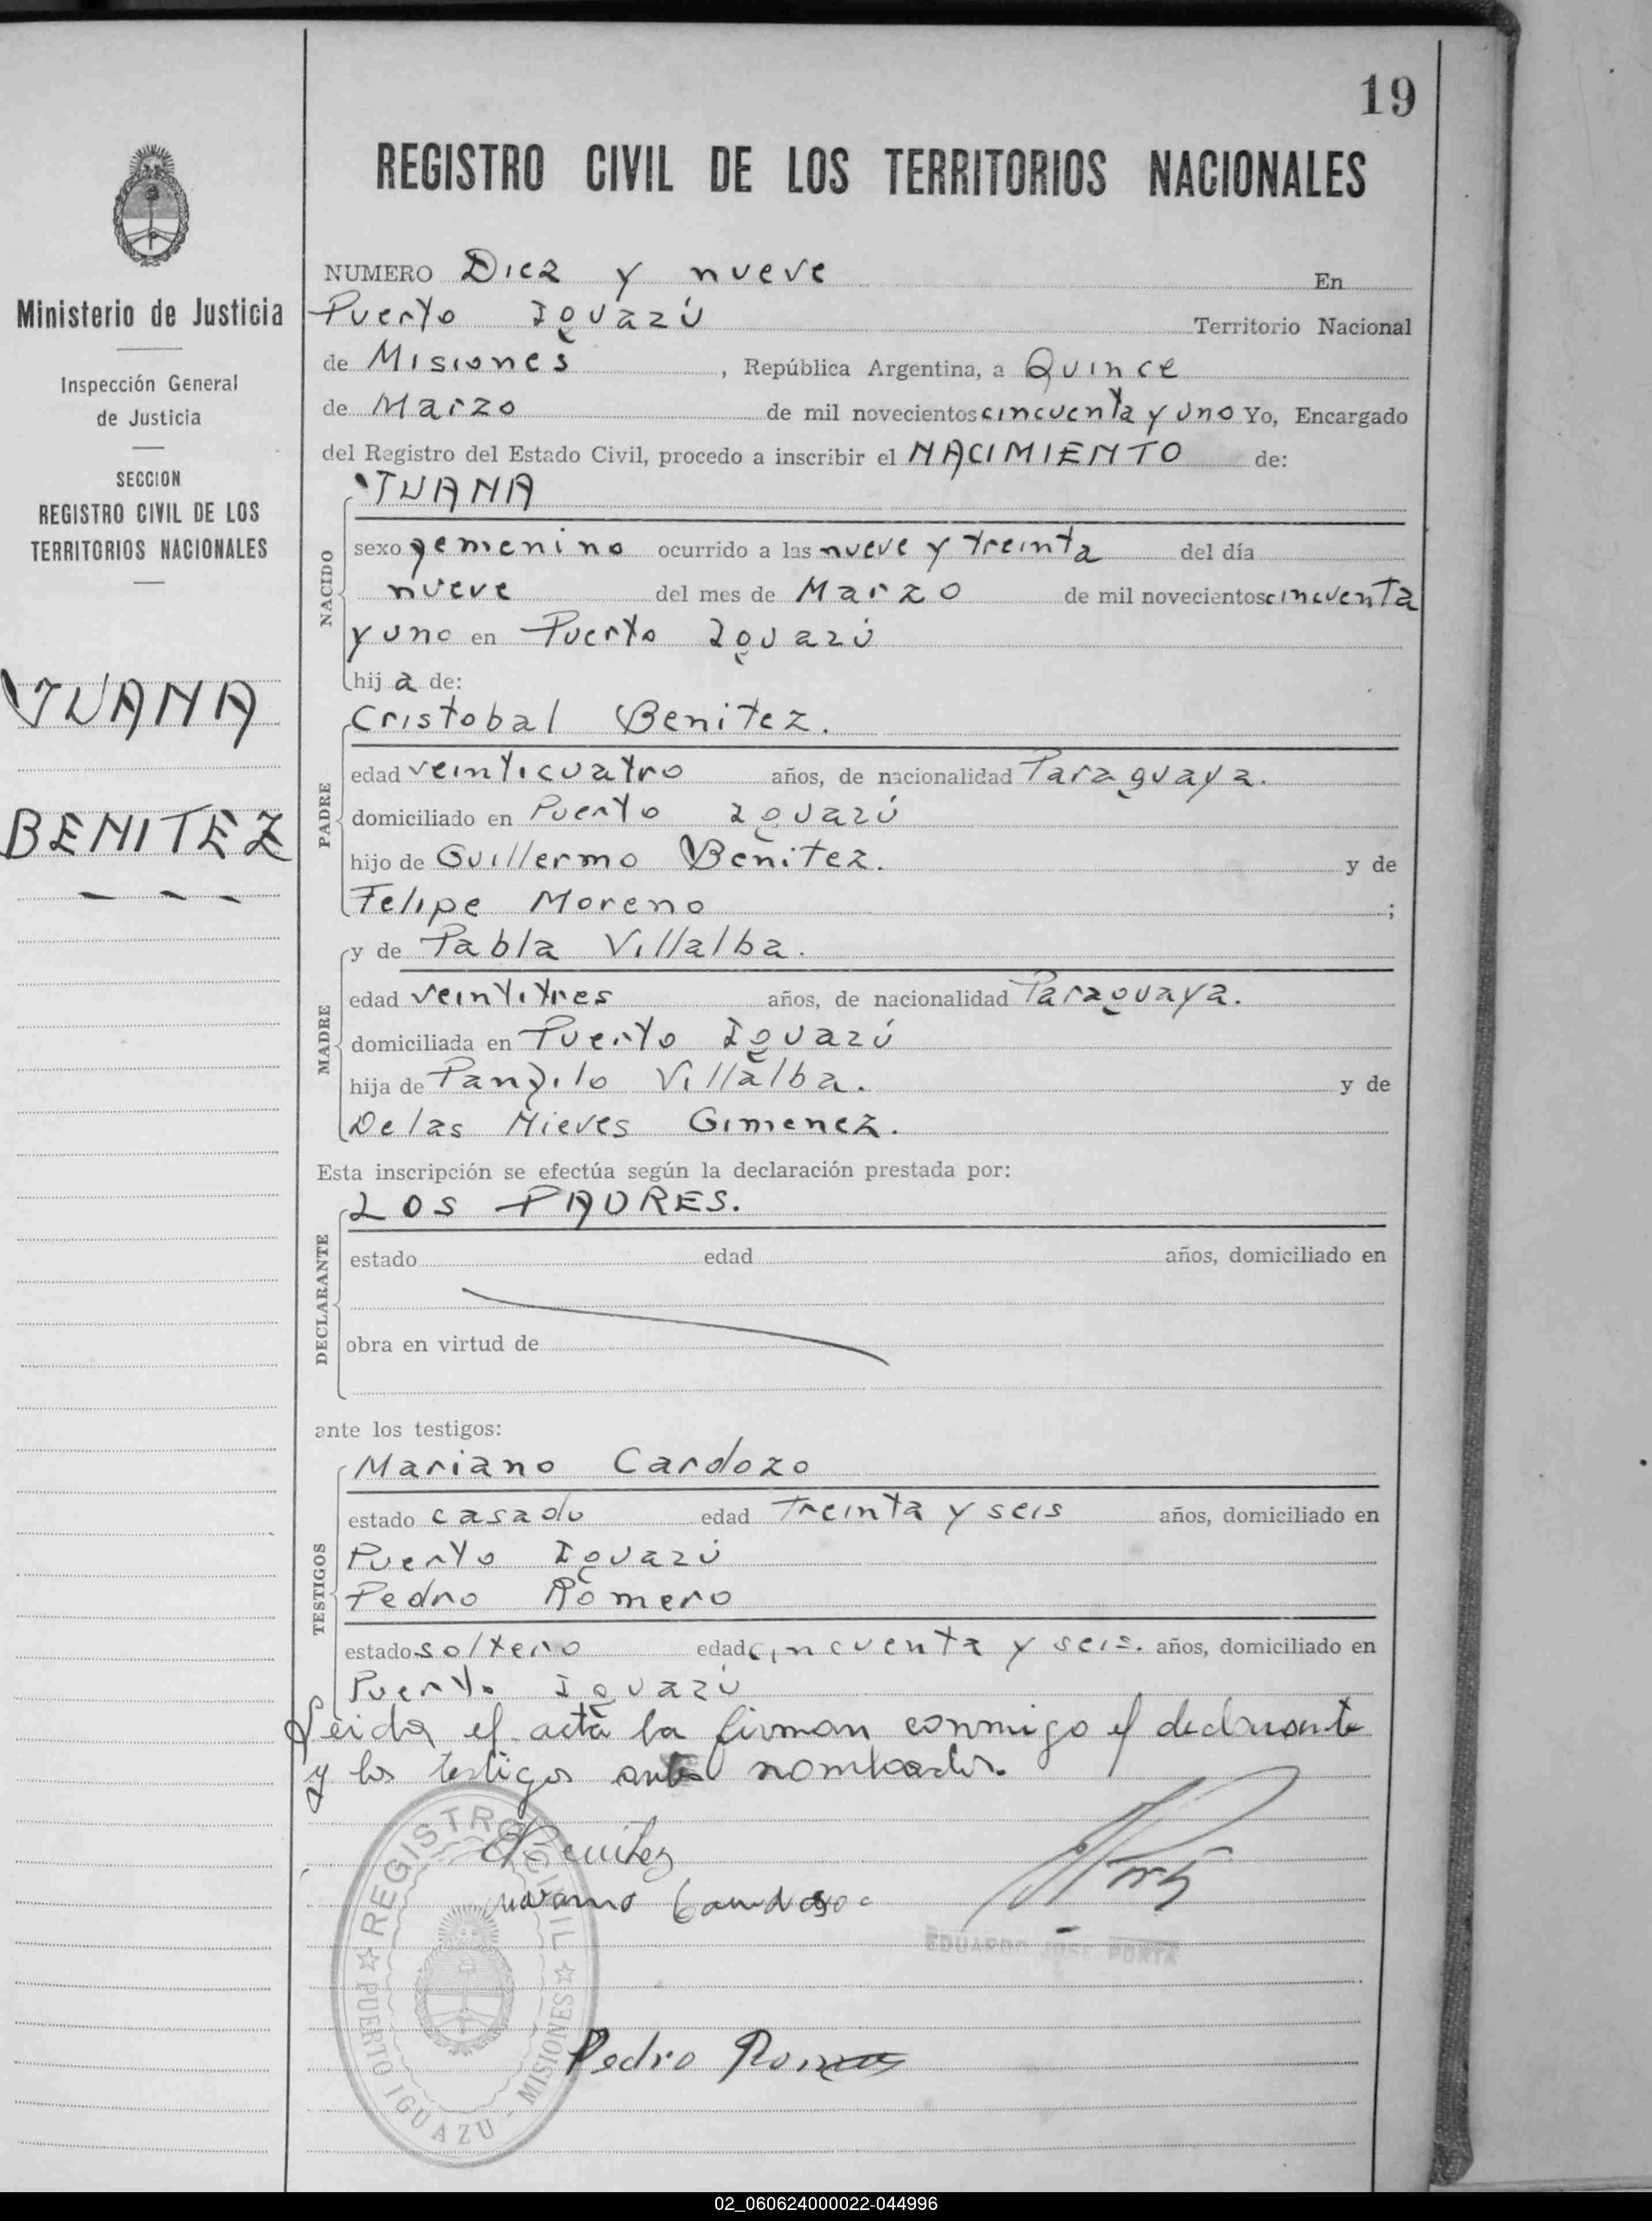 19
REGISTRO CIVIL DE LOS TERRITORIOS NACIONALES
Ministerio de Justicia
Inspección General
de Justicia
SECCION
REGISTRO CIVIL DE LOS
TERRITORIOS NACIONALES
JUANA
BENITEZ
NUMERO Diez y nueve En
Puerto Iguazú Territorio Nacional
de Misiones, República Argentina, a Quince
de Marzo de mil novecientos cincuenta y uno Yo, Encargado
del Registro del Estado Civil, procedo a inscribir el NACIMIENTO de:
NACIDO
JUANA
sexo femenino ocurrido a las nueve y treinta del día
nueve del mes de Marzo de mil novecientos cincuenta
y uno en Puerto Iguazú
hija de:
PADRE
Cristobal Benitez.
edad veinticuatro años, de nacionalidad Paraguaya.
domiciliado en Puerto Iguazú
hijo de Guillermo Benitez. y de
Felipe Moreno ;
MADRE
y de Pabla Villalba.
edad veintitres años, de nacionalidad Paraguaya.
domiciliada en Puerto Iguazú
hija de Panfilo Villalba. y de
Delas Nieves Gimenez.
Esta inscripción se efectúa según la declaración prestada por:
DECLARANTE
LOS PADRES.
estado edad años, domiciliado en
obra en virtud de
ante los testigos:
TESTIGOS
Mariano Cardozo
estado casado edad treinta y seis años, domiciliado en
Puerto Iguazú
Pedro Romero
estado soltero edad cincuenta y seis. años, domiciliado en
Puerto Iguazú
Leida el acta la firman conmigo el declarante
y los testigos antes nombrados.
Benitez
Mariano Cardoso
EDUARDO JOSE PORTA
REGISTRO CIVIL
PUERTO IGUAZU - MISIONES
Pedro
02_060624000022-044996